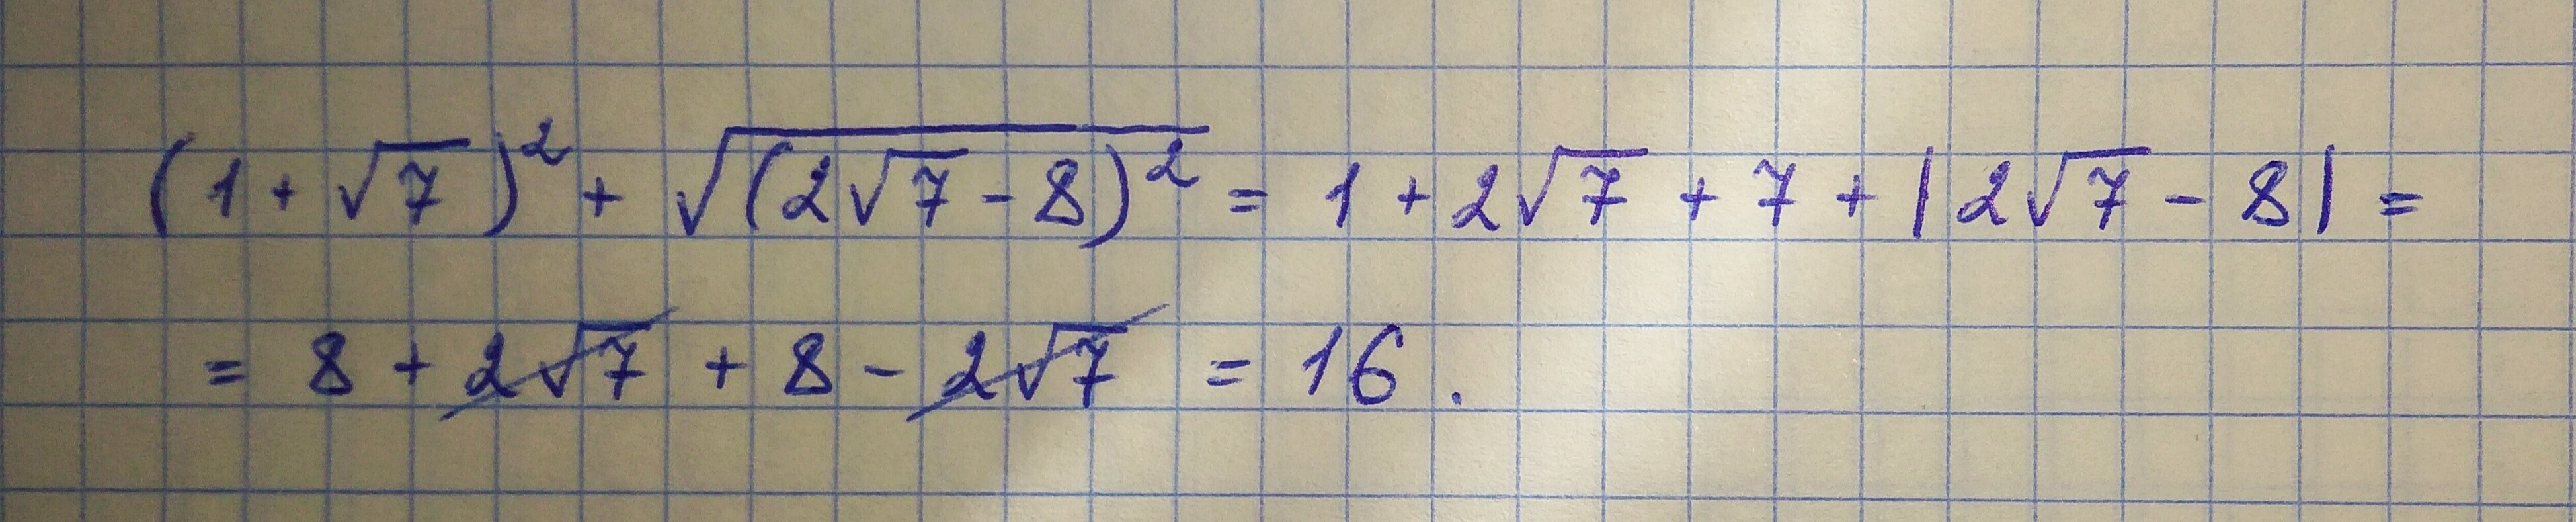 (1 + √7)² + √(2√7 - 8)² = 1 + 2√7 + 7 + |2√7 - 8| =
= 8 + 2√7 + 8 - 2√7 = 16.